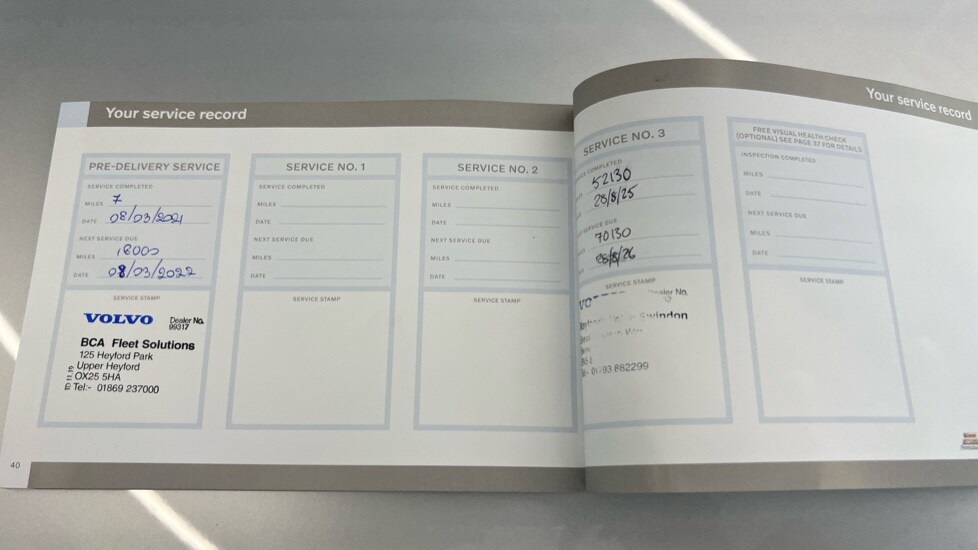 Your service record
PRE-DELIVERY SERVICE
SERVICE COMPLETED
MILES 7
DATE 08/03/2021
NEXT SERVICE DUE
MILES 18000
DATE 08/03/2022
SERVICE STAMP
VOLVO Dealer No.
99317
BCA Fleet Solutions
125 Heyford Park
Upper Heyford
OX25 5HA
Tel:- 01869 237000
40
SERVICE NO. 1
SERVICE COMPLETED
MILES
DATE
NEXT SERVICE DUE
MILES
DATE
SERVICE STAMP
SERVICE NO. 2
SERVICE COMPLETED
MILES
DATE
NEXT SERVICE DUE
MILES
DATE
SERVICE STAMP
Your service record
SERVICE NO. 3
COMPLETED
52130
28/8/25
SERVICE DUE
70130
28/8/26
SERVICE STAMP
No.
Swindon
882299
FREE VISUAL HEALTH CHECK
(OPTIONAL) SEE PAGE 37 FOR DETAILS
INSPECTION COMPLETED
MILES
DATE
NEXT SERVICE DUE
MILES
DATE
SERVICE STAMP